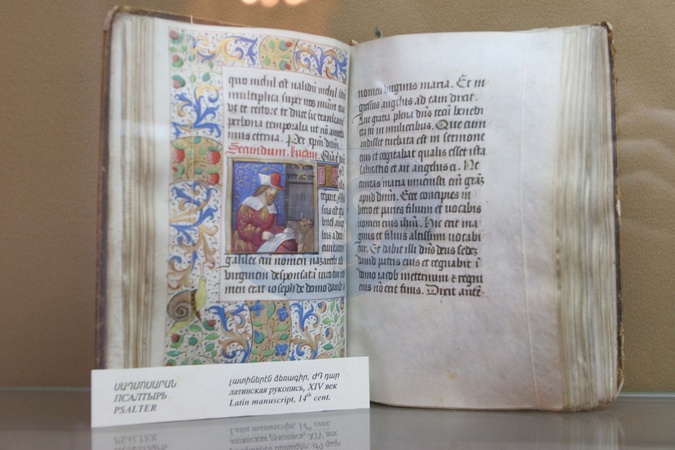 quo nichil est validū nichil
multiplica super nos
ut te rectore te duce sic
per bona temporalia ut nō amitta
mus eterna. Per xpm dnm.
Secundum lucam.
galilee cui nomen nazareth ad
virginem desponsatā viro cui no
men erat ioseph de domo david
nomen virginis maria. Et in
gressus angelus ad eam dixit.
Ave gratia plena dns tecū bened
ta tu in mulieribus. Que cum
audisset turbata est in sermone
eius et cogitabat qualis esset ista
salutatio et ait angelus ei. Ne
timeas maria invenisti eni gra3
apud dnm. Ecce concipies in
utero et paries filium et vocabis
nomen eius ihm. Hic erit ma
gnus et filius altissimi vocabi
tur. Et dabit illi dns deus sedez
david patris eius et regnabit i
domo iacob in eternum et regni
eius nō erit finis. Dixit autē
ՍԱՂՄՈՍԱՐԱՆ
ПСАЛТЫРЬ
PSALTER
լատիներէն ձեռագիր, ԺԴ դար
латинская рукопись, XIV век
Latin manuscript, 14th cent.